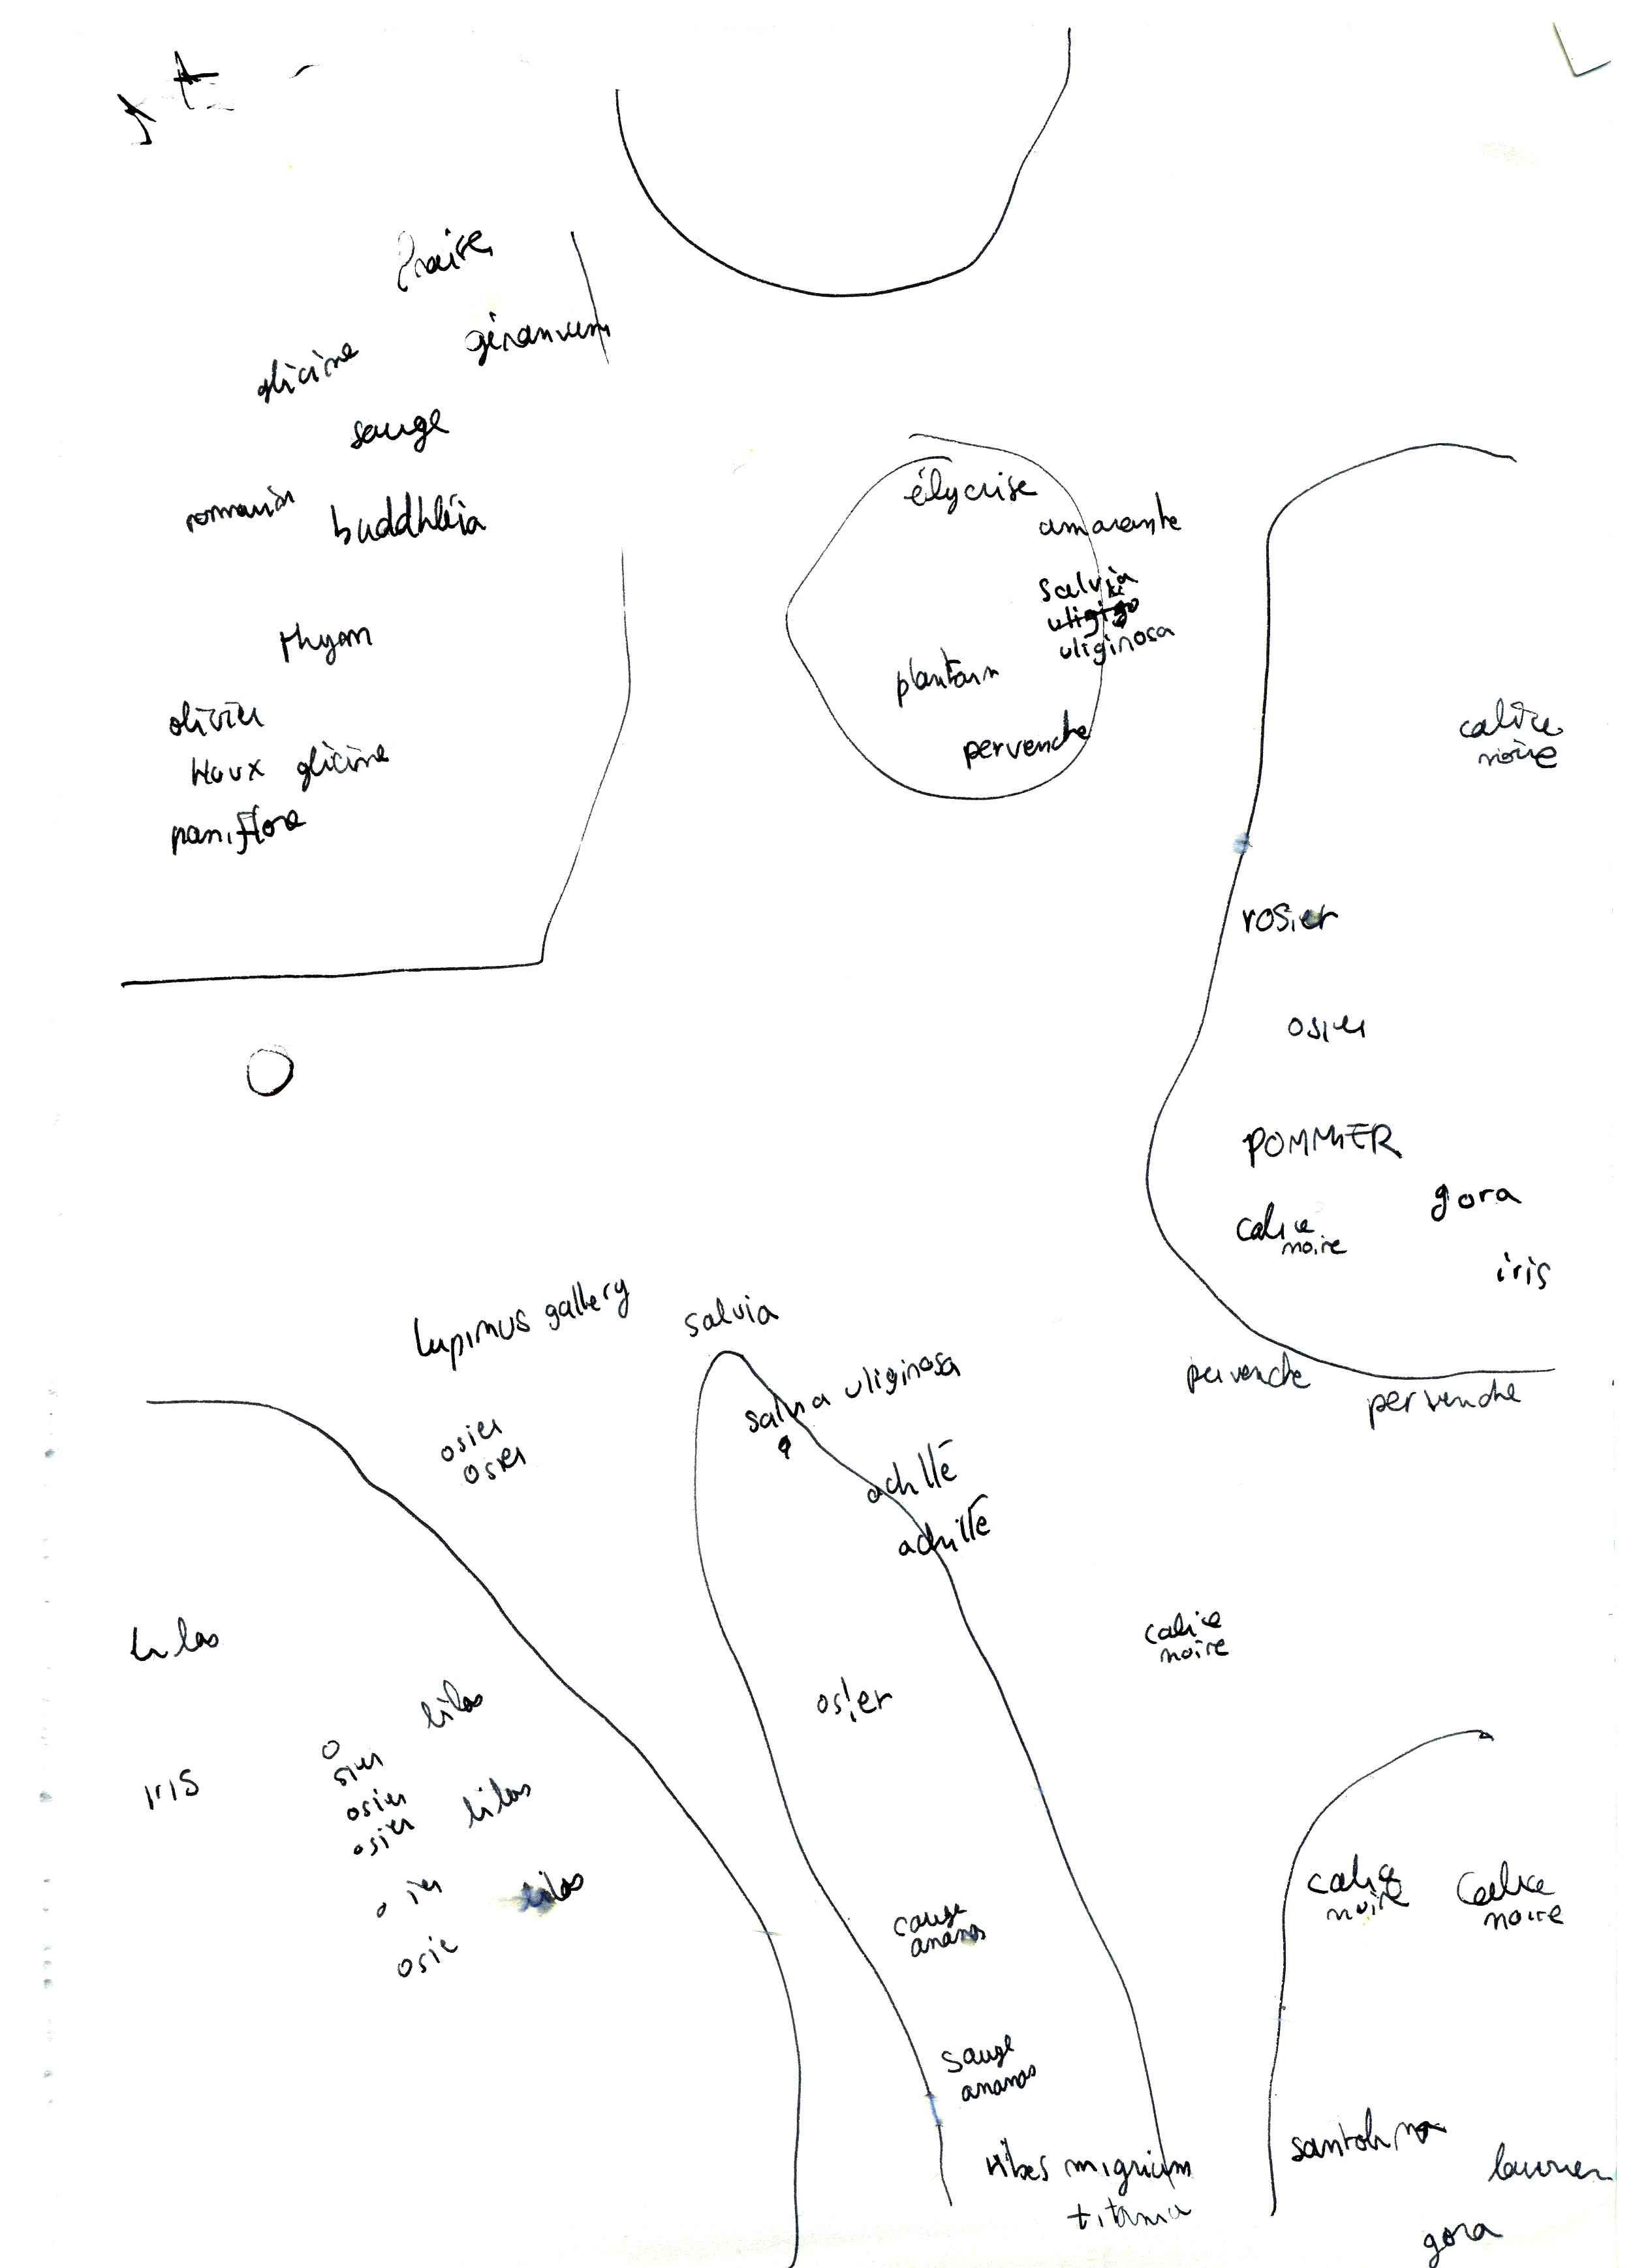 fraise
géranium
glicine
sauge
romarin
buddhléia
thym
olivier
Houx glicine
passiflore
élycrise
amarante
salvia
uliginosa
plantain
pervenche
calice
noire
rosier
osier
POMMIER
gora
calice
noire
iris
pervenche
pervenche
lupinus gallery
salvia
salvia uliginosa
osier
osier
achillé
achillé
lilas
calice
noire
lilas
osier
iris
osier
osier
lilas
osier
lilas
osie
osier
sauge
ananas
sauge
ananas
ribes nigrum
titania
calice
noire
calice
noire
santolina
laurier
gora